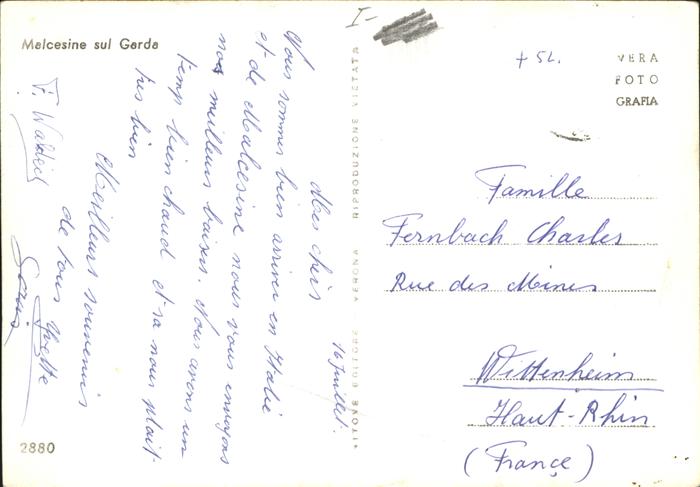 Malcesine sul Garda
I-
+ 52.
VERA
FOTO
GRAFIA
16 Juillet.
Mes chers
Nous sommes bien arriver en Italie
et de Malcesine nous vous envoyons
nos meilleurs baisers. Nous avons un
temp bien chaud et sa nous plait
tres bien
Meilleurs souvenirs
de tous Yvette
Famille
Fernbach Charles
Rue des Mines
Wittenheim
Haut-Rhin
(France)
EDITORE VERONA RIPRODUZIONE VIETATA
2880